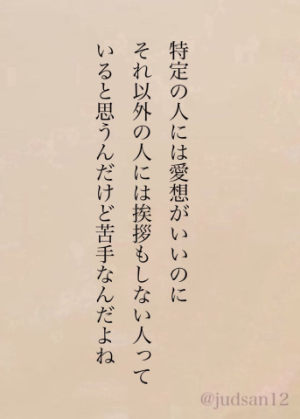 特定の人には愛想がいいのに
それ以外の人には挨拶もしない人って
いると思うんだけど苦手なんだよね
@judsan12